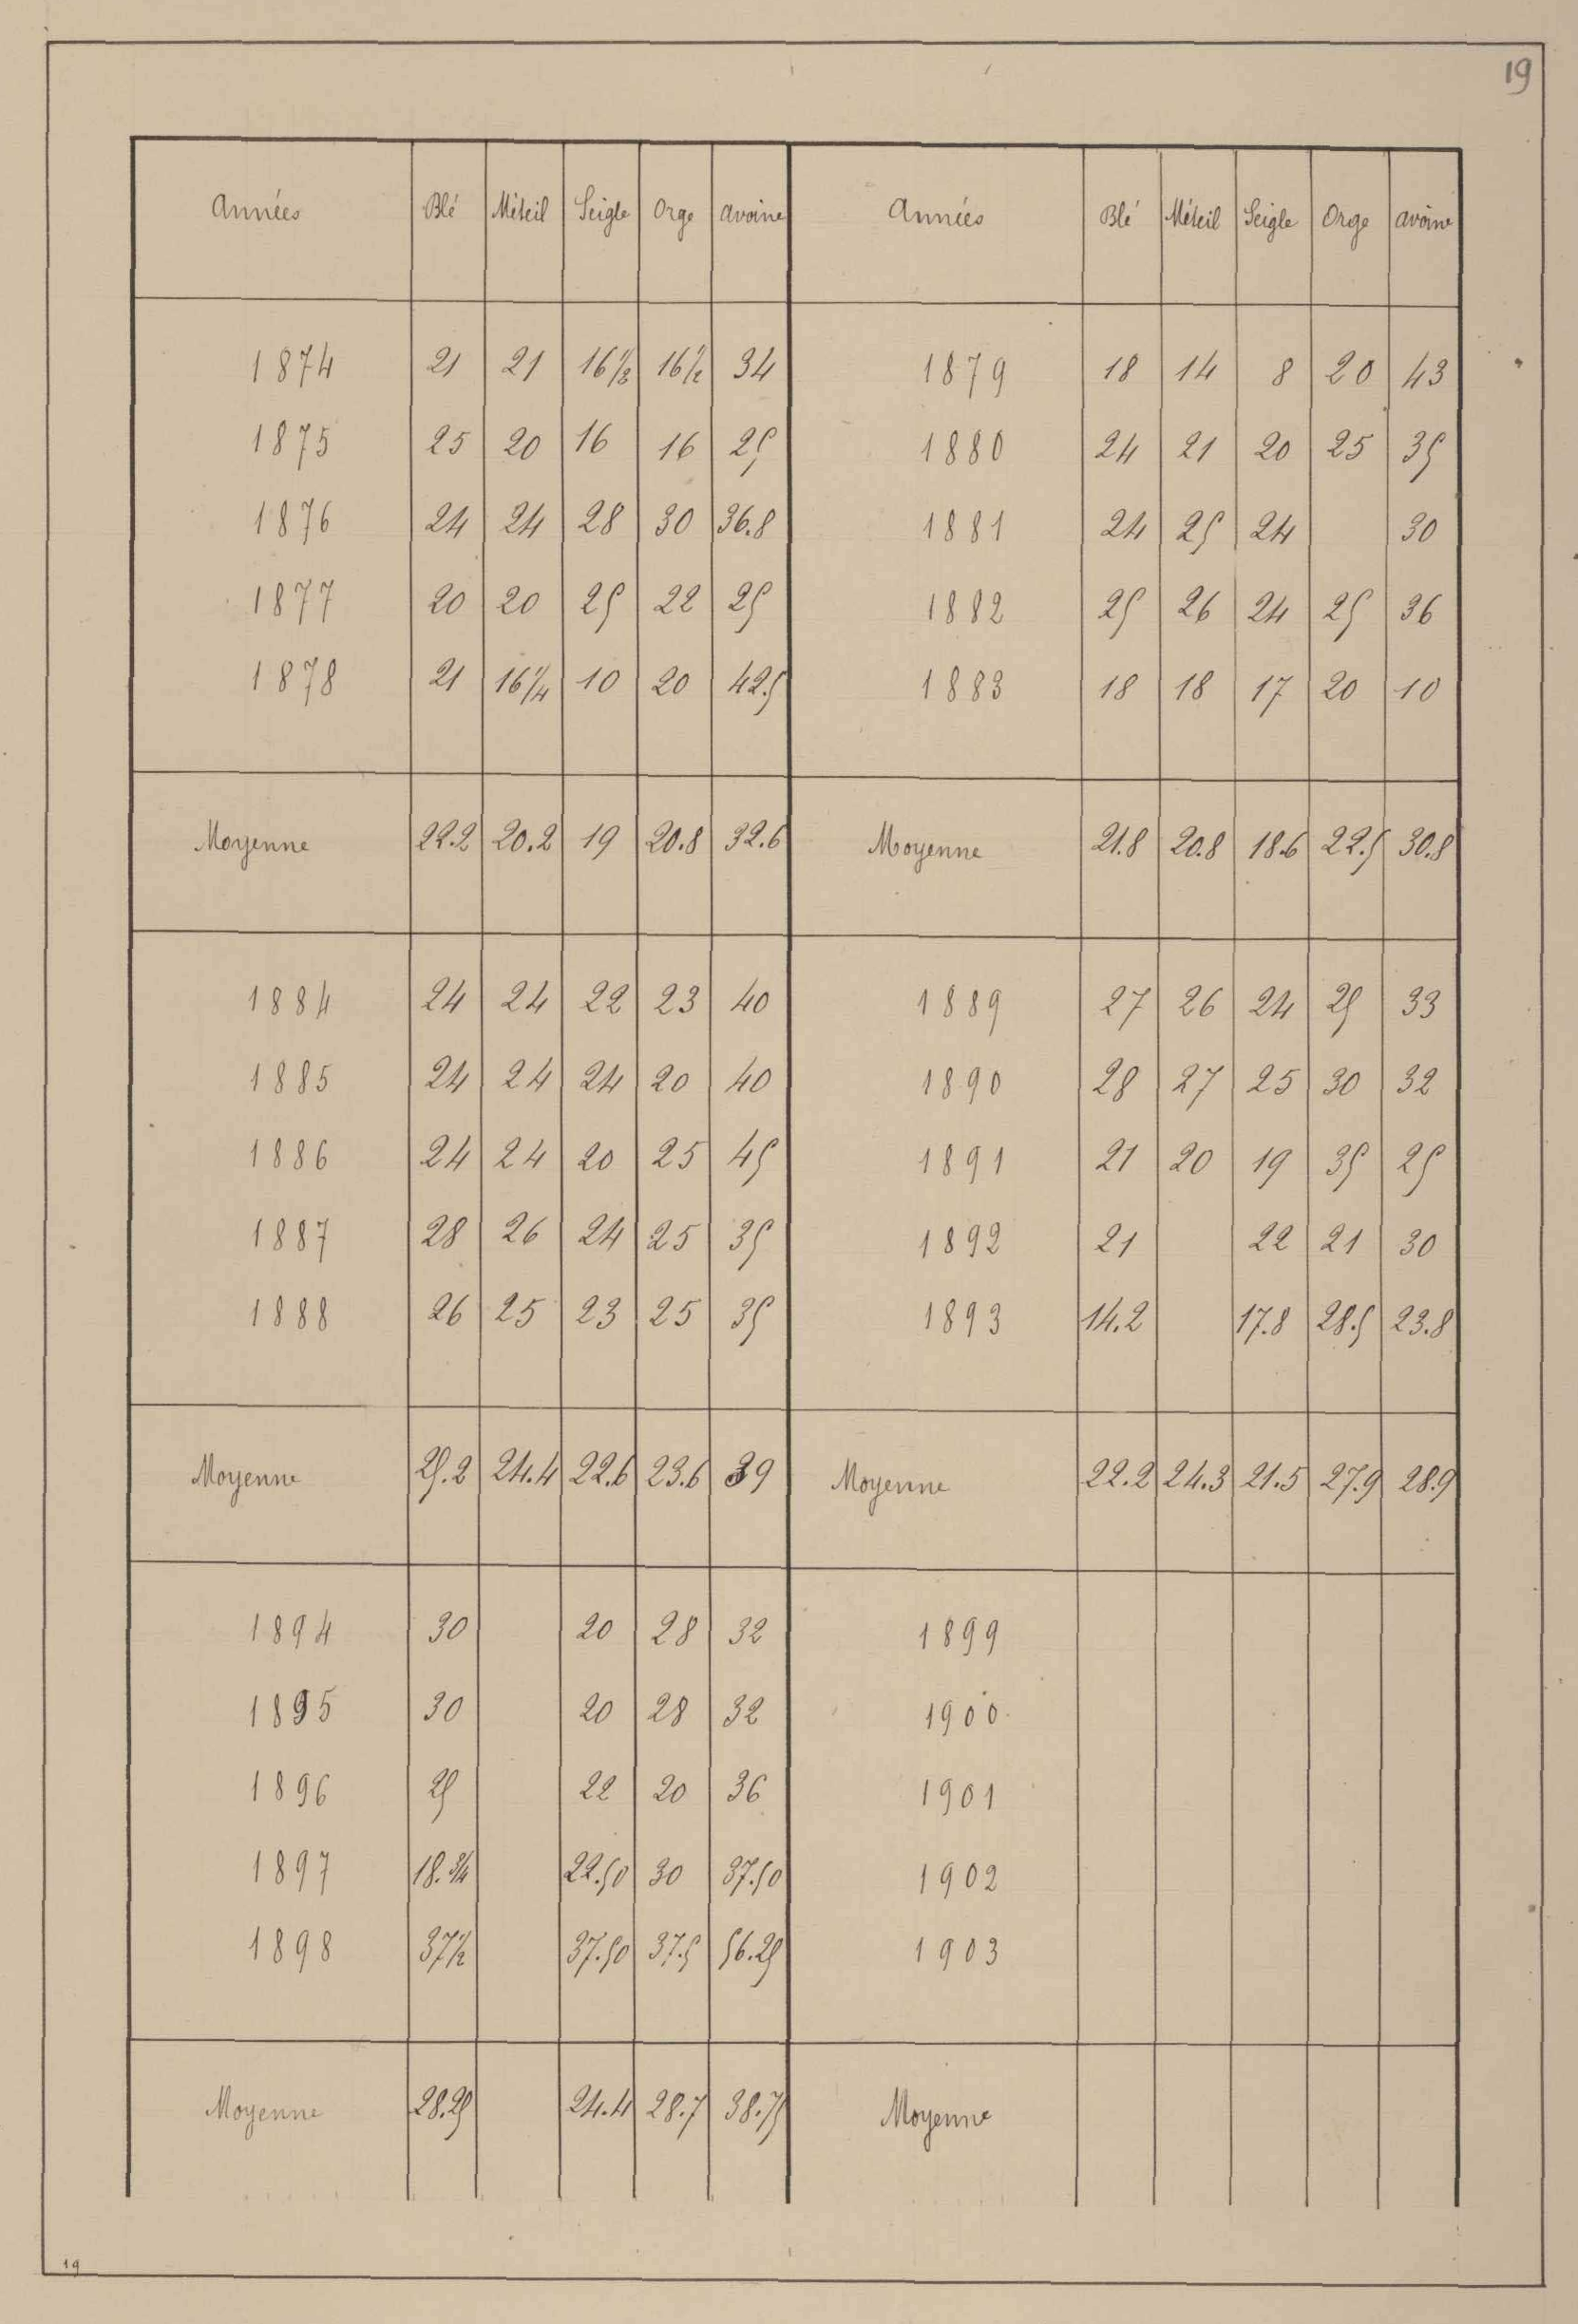 19
Années Blé Méteil Seigle Orge avoine Années Blé Méteil Seigle Orge avoine
1874 21 21 16 1/2 16 1/2 34 1879 18 14 8 20 43
1875 25 20 16 16 25 1880 24 21 20 25 35
1876 24 24 28 30 36.8 1881 24 25 24 30
1877 20 20 25 22 25 1882 25 26 24 25 36
1878 21 16 1/4 10 20 42.5 1883 18 18 17 20 10
Moyenne 22.2 20.2 19 20.8 32.6 Moyenne 21.8 20.8 18.6 22.5 30.8
1884 24 24 22 23 40 1889 27 26 24 25 33
1885 24 24 24 20 40 1890 28 27 25 30 32
1886 24 24 20 25 45 1891 21 20 19 35 25
1887 28 26 24 25 35 1892 21 22 21 30
1888 26 25 23 25 35 1893 14.2 17.8 28.5 23.8
Moyenne 25.2 24.4 22.6 23.6 39 Moyenne 22.2 24.3 21.5 27.9 28.9
1894 30 20 28 32 1899
1895 30 20 28 32 1900
1896 25 22 20 36 1901
1897 18.3/4 22.50 30 37.50 1902
1898 37 1/2 37.50 37.5 56.25 1903
Moyenne 28.25 24.4 28.7 38.75 Moyenne
19